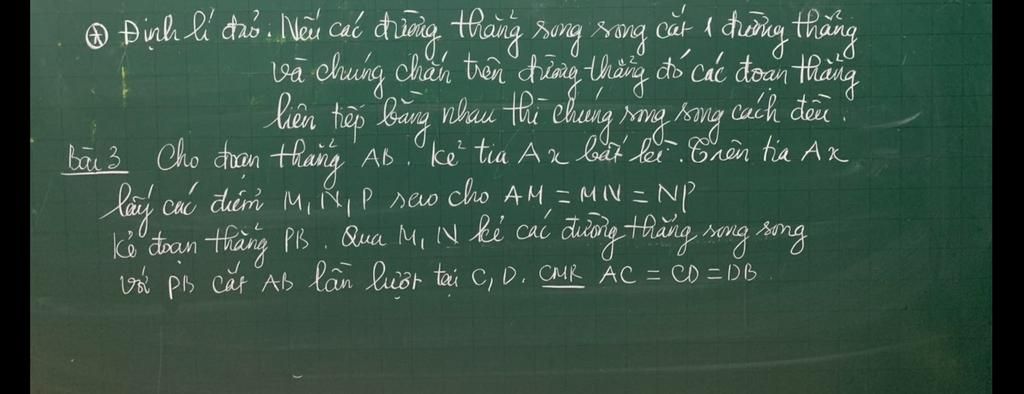 ⊛ Định lí đảo: Nếu các đường thẳng song song cắt 1 đường thẳng
và chúng chắn trên đường thẳng đó các đoạn thẳng
liên tiếp bằng nhau thì chúng song song cách đều.
Bài 3 Cho đoạn thẳng AB. Kẻ tia Ax bất kì. Trên tia Ax
lấy các điểm M, N, P sao cho AM = MN = NP
Kẻ đoạn thẳng PB. Qua M, N kẻ các đường thẳng song song
với PB cắt AB lần lượt tại C, D. CMR AC = CD = DB.